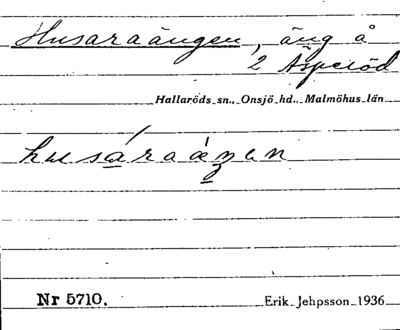 Husaraängen, äng å
2 Äsperöd
Hallaröds sn., Onsjö hd., Malmöhus län
Nr 5710. Erik Jehpsson 1936